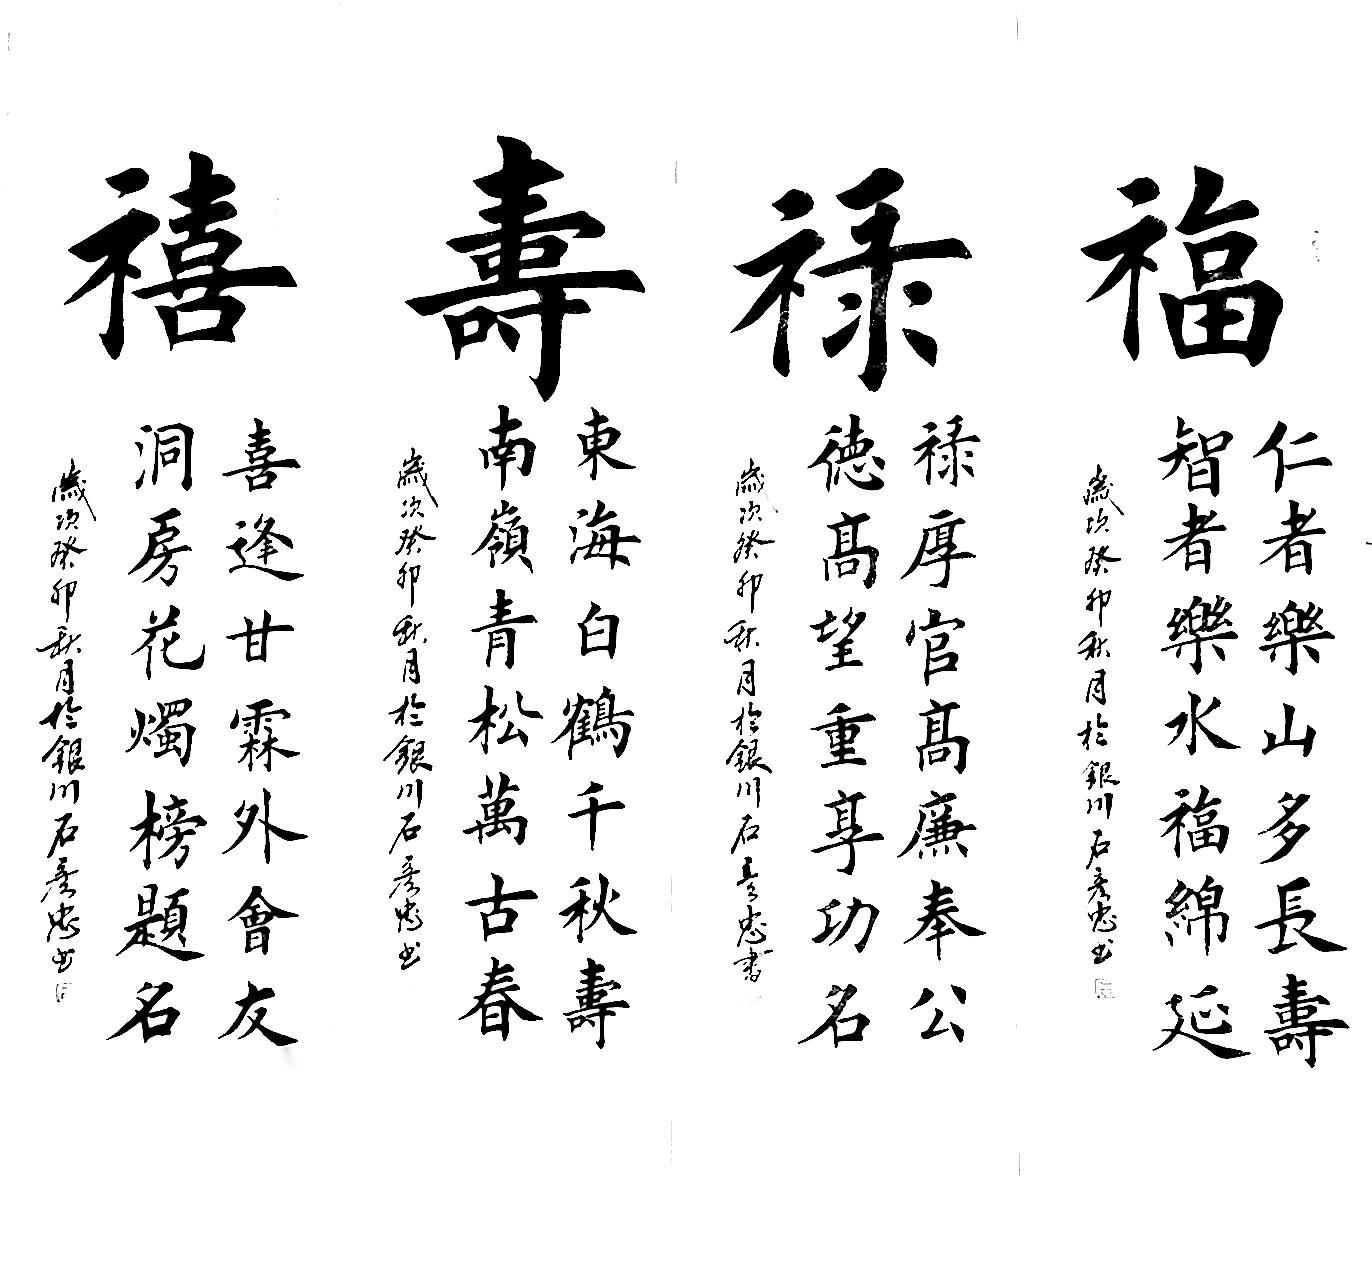 福
仁者樂山多長壽
智者樂水福綿延
歲次癸卯秋月於銀川石彥忠书
禄
禄厚官髙廉奉公
徳髙望重享功名
歲次癸卯秋月於銀川石彥忠書
壽
東海白鶴千秋壽
南嶺青松萬古春
歲次癸卯秋月於銀川石彥忠书
禧
喜逢甘霖外會友
洞房花燭榜題名
歲次癸卯秋月於銀川石彥忠书